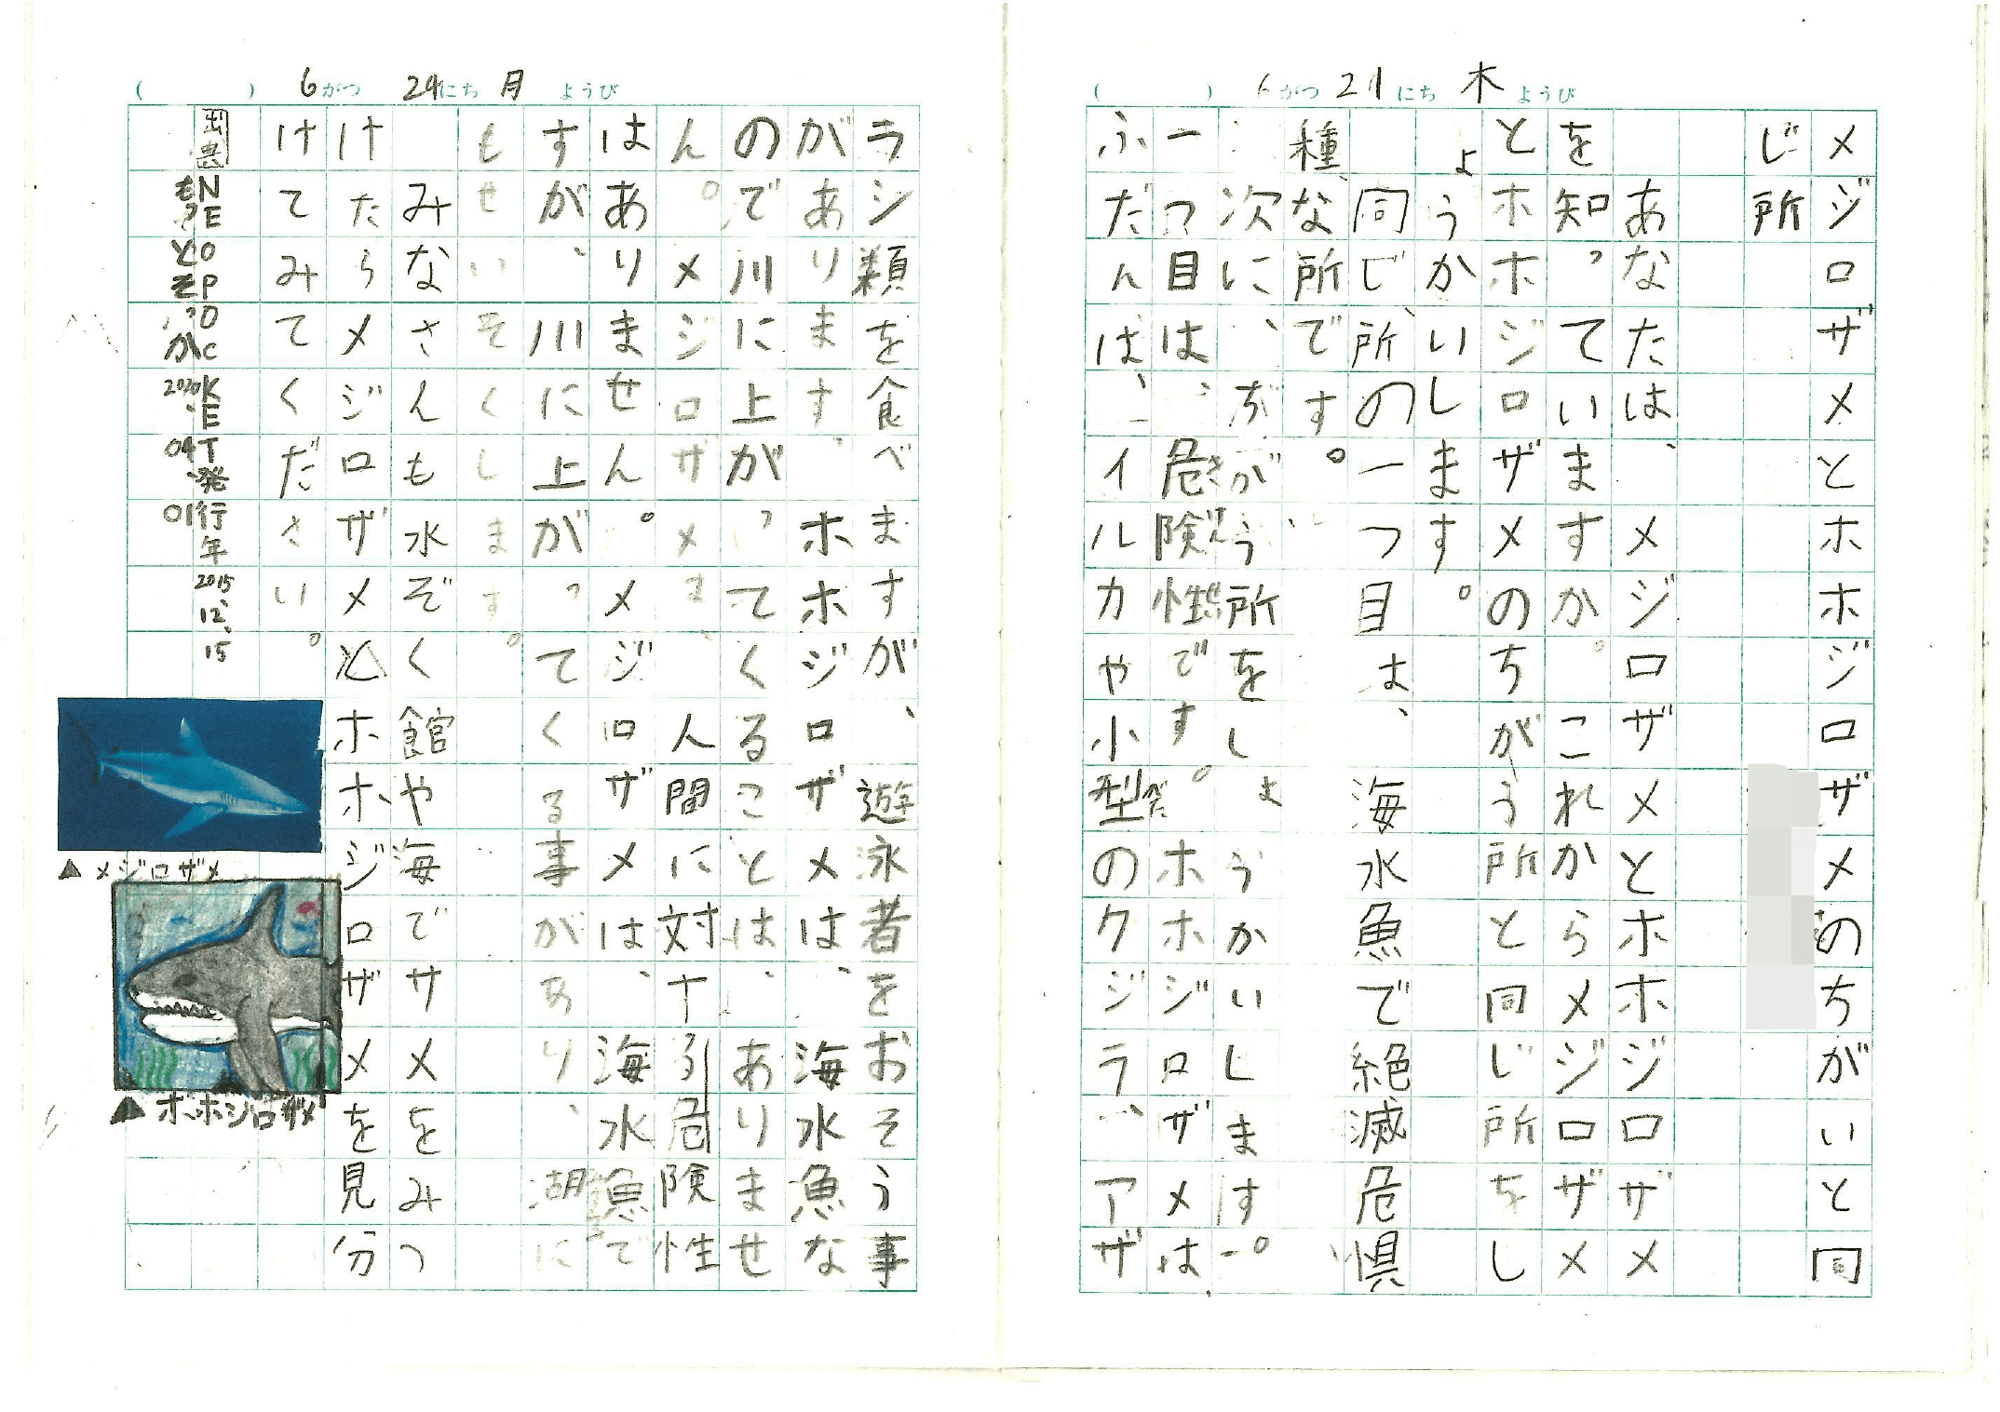 ( ) 6がつ 21にち 木ようび
メジロザメとホホジロザメのちがいと同
じ所
あなたは、メジロザメとホホジロザメ
を知っていますか。これからメジロザメ
とホホジロザメのちがう所と同じ所をし
ょうかいします。
同じ所の一つ目は、海水魚で絶滅危惧
種な所です。
次に、ちがう所をしょうかいします。
一つ目は、危険性です。ホホジロザメは、
ふだんは、イルカや小型のクジラ、アザ
( ) 6がつ 24にち 月ようび
ラシ類を食べますが、遊泳者をおそう事
があります、ホホジロザメは、海水魚な
ので川に上がってくることは、ありませ
ん。メジロザメは、人間に対する危険性
はありません。メジロザメは、海水魚で
すが、川に上がってくる事があり、湖に
もせいそくします。
みなさんも水ぞく館や海でサメをみつ
けたらメジロザメとホホジロザメを見分
けてみてください。
NEOPOCKET発行年2015 12、15
2020、04、01
▲メジロザメ
▲ホホジロザメ